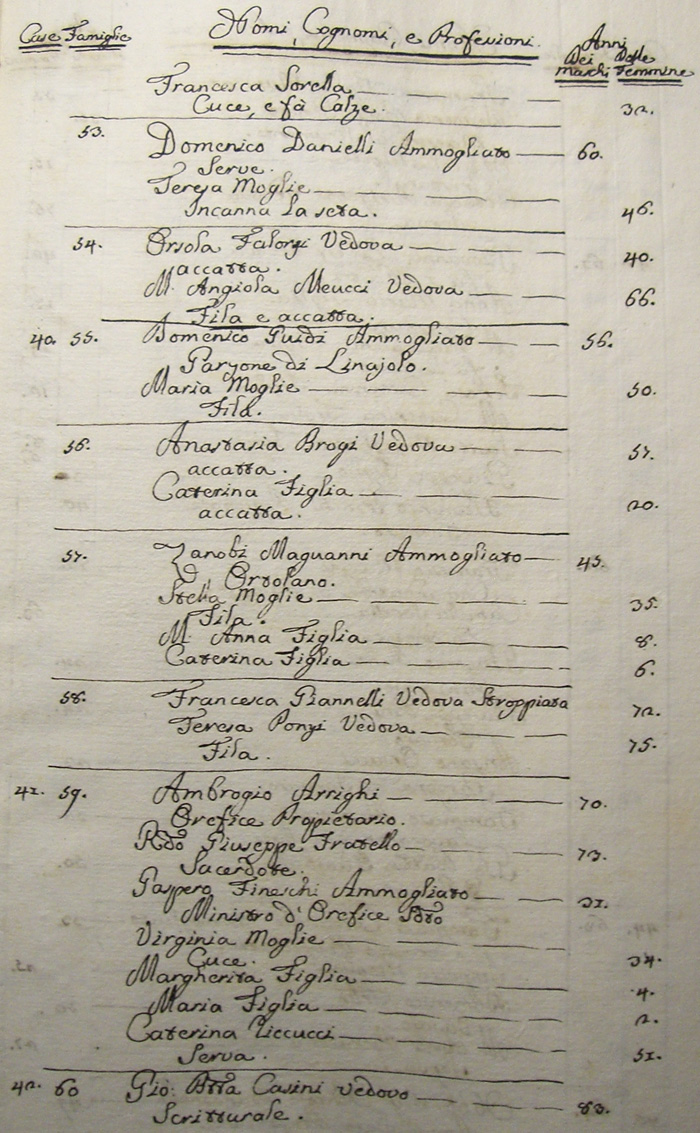 Case Famiglie Nomi, Cognomi, e Professioni. Anni
Dei Delle
maschi Femmine
Francesca Sorella
Cuce, e fà Calze. 32.
53. Domenico Danielli Ammogliato 60.
Serve.
Teresa Moglie
Incanna La seta. 46.
54. Orsola Falorsi Vedova 40.
accatta.
M. Angiola Meucci Vedova 66.
Fila e accatta.
40. 55. Domenico Guidi Ammogliato 56.
Garzone di Linajolo.
Maria Moglie 50.
Fila.
56. Anastasia Brogi Vedova 57.
accatta.
Caterina Figlia 20.
accatta.
57. Zanobi Ammogliato 45.
Ortolano.
Stella Moglie 35.
Fila.
M. Anna Figlia 8.
Caterina Figlia 6.
58. Francesca Giannelli Vedova Stroppiata 72.
Teresa Ponzi Vedova 75.
Fila.
41. 59. Ambrogio Arrighi 70.
Orefice Propietario.
Rdo Giuseppe Fratello 73.
Sacerdote.
Gaspero Fineschi Ammogliato 31.
Ministro d'Orefice
Virginia Moglie 34.
Cuce.
Margherita Figlia 4.
Maria Figlia 2.
Caterina Liccucci
Serva. 51.
42. 60 Gio: Btta Casini vedovo 83.
Scritturale.